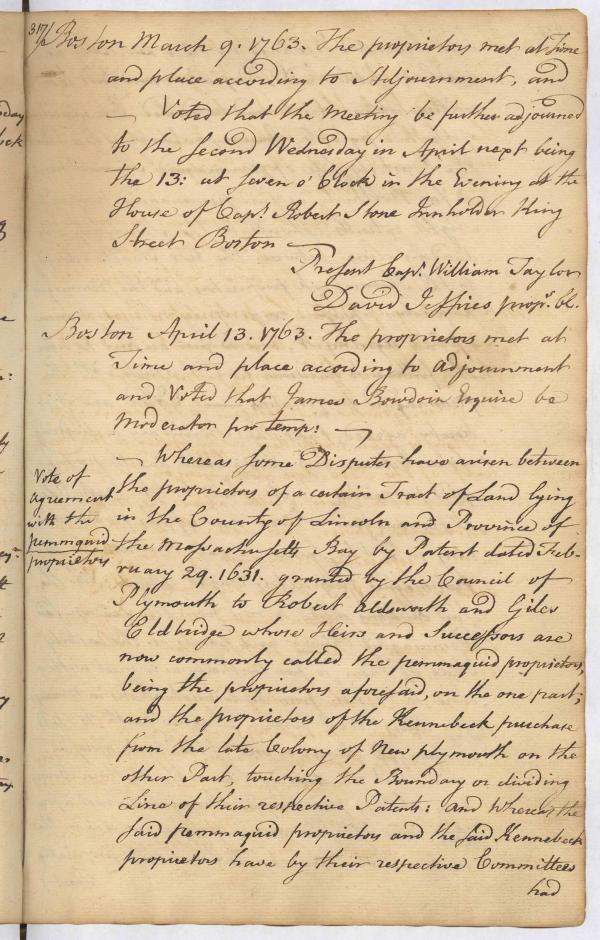 317/
Boston March 9. 1763. The proprietors met at Time
and place according to Adjournment, and
— Voted that the Meeting be further adjourned
to the second Wednesday in April next being
the 13: at seven o' Clock in the Evening at the
House of Capt. Robert Stone Innholder King
Street Boston —
Present Capt. William Taylor
David Jeffries propr. Cl.
Boston April 13. 1763. The proprietors met at
Time and place according to adjournment
and Voted that James Bowdoin Esquire be
Moderator pro temp: —
— Whereas some Disputes have arisen between
Vote of
agreement
with the
pemmaquid
proprietors
the proprietors of a certain Tract of Land lying
in the County of Lincoln and Province of
the Massachusetts Bay by Patent dated Feb-
ruary 29. 1631. granted by the Council of
Plymouth to Robert Aldsworth and Giles
Eldbridge whose Heirs and Successors are
now commonly called the pemmaquid proprietors,
being the proprietors aforesaid, on the one part;
and the proprietors of the Kennebeck purchase
from the late Colony of New plymouth on the
other Part, touching the Boundary or dividing
Line of their respective Patents: and Whereas the
said pemmaquid proprietors and the said Kennebeck
proprietors have by their respective Committees
had